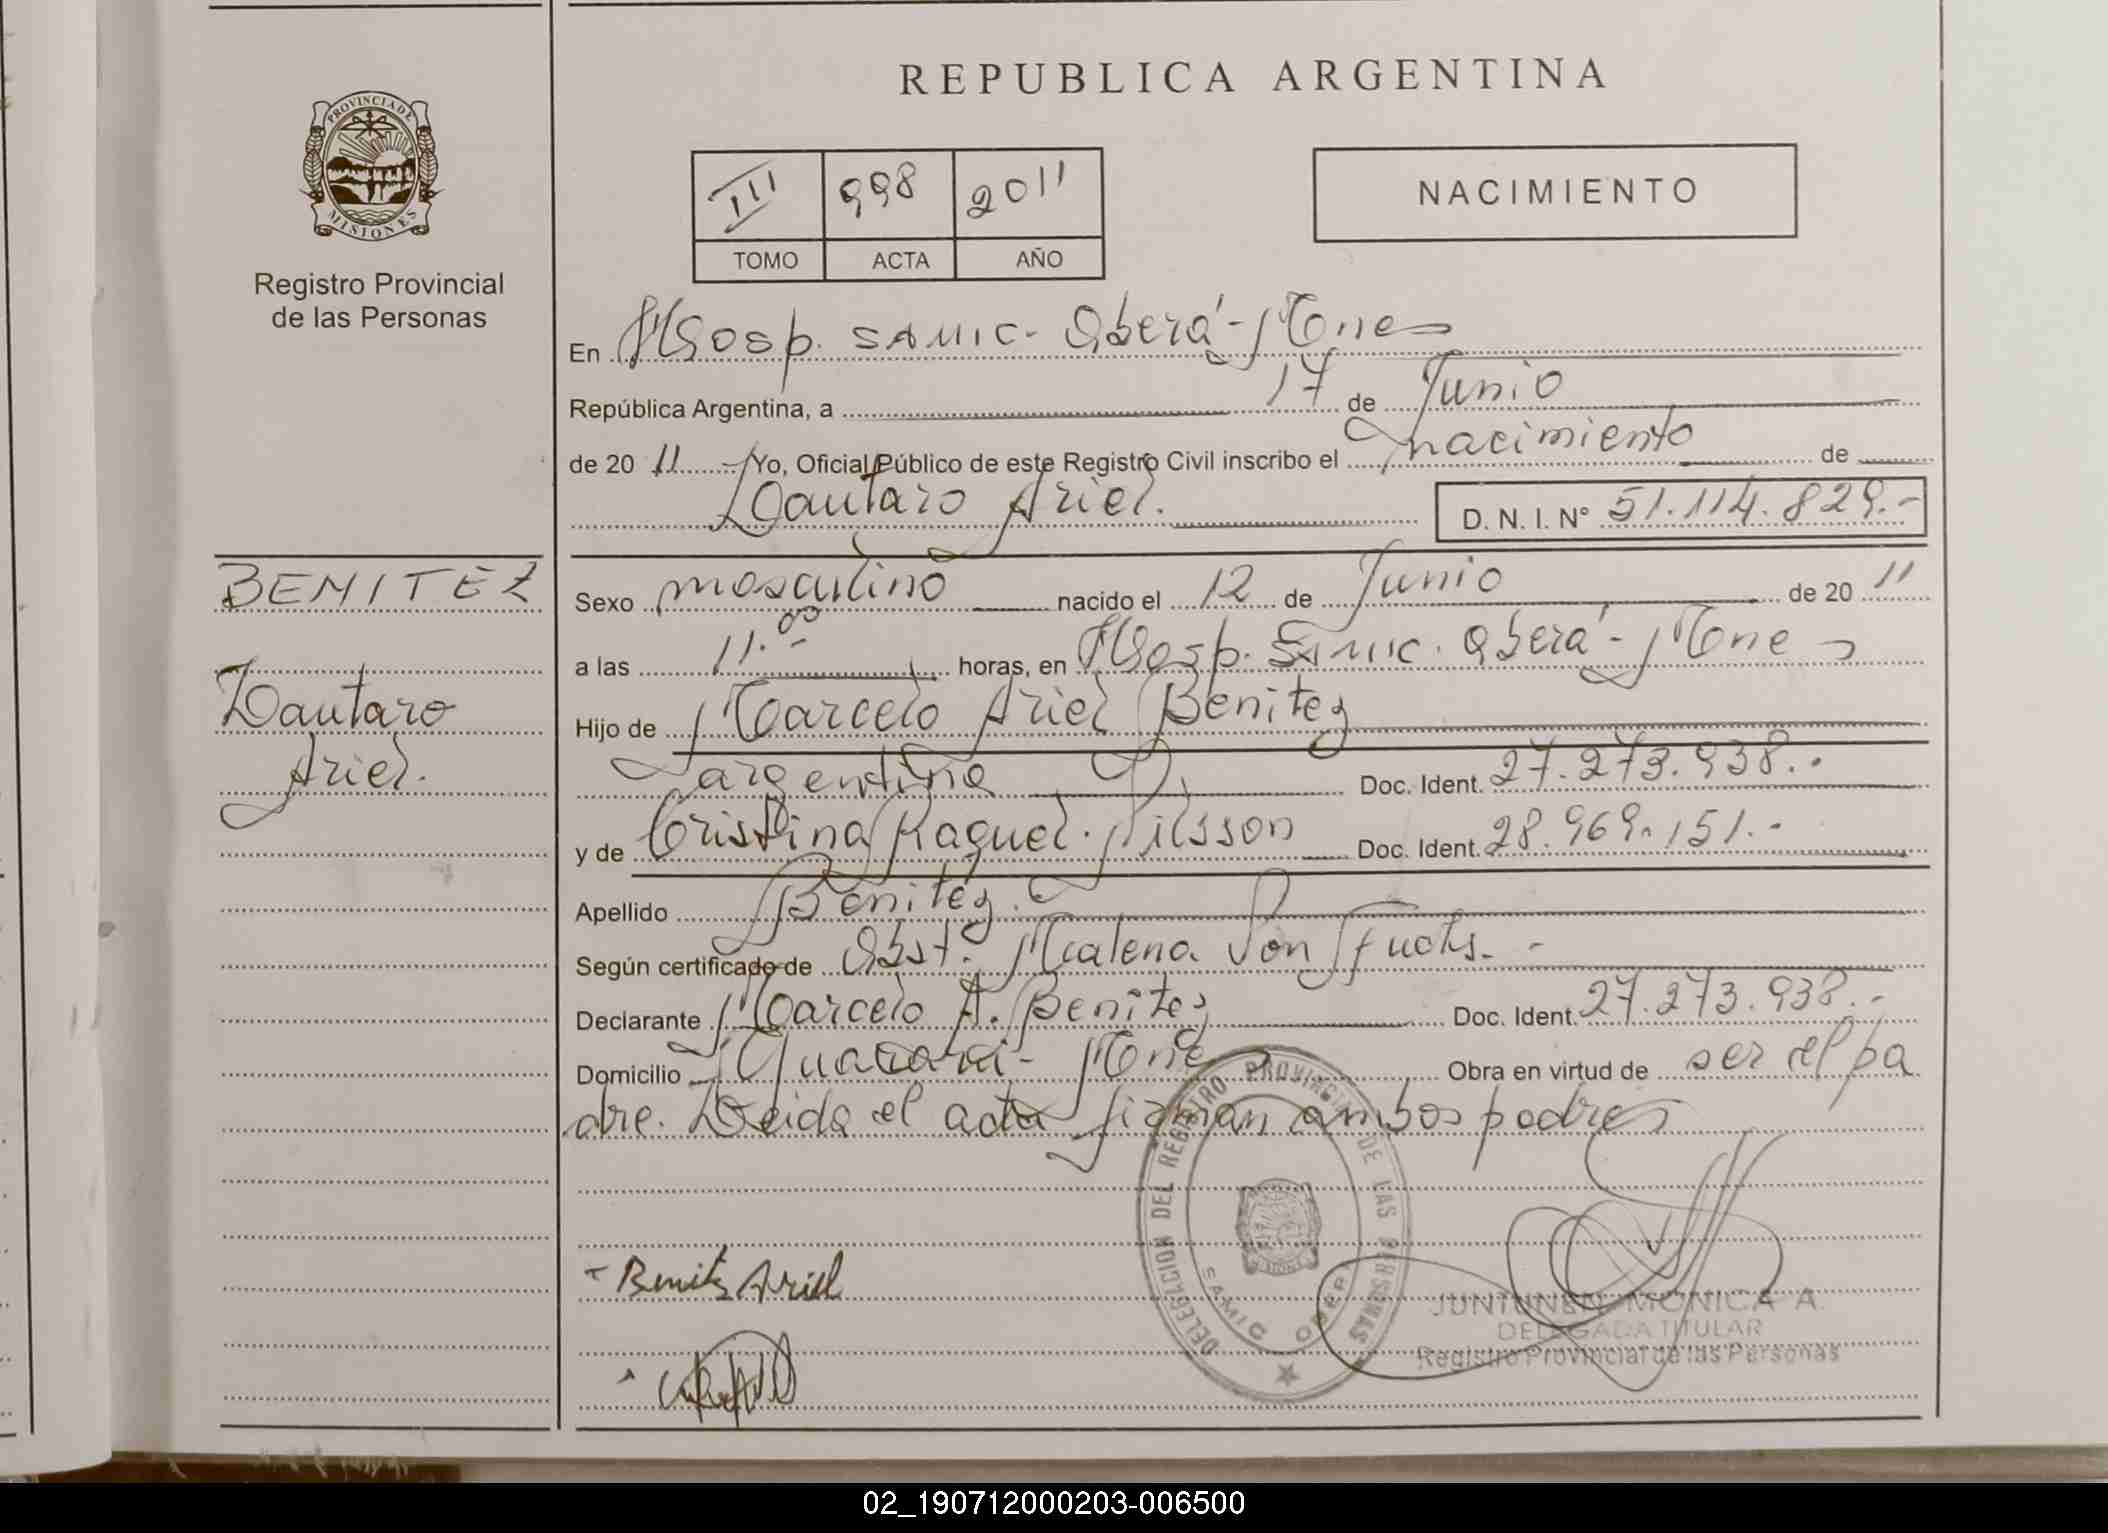 REPUBLICA ARGENTINA
PROVINCIA DE
MISIONES
Registro Provincial
de las Personas
III 998 2011
TOMO ACTA AÑO
NACIMIENTO
En Hosp. SAMIC - Oberá - Mnes
República Argentina, a 17 de Junio
de 20 11 Yo, Oficial Público de este Registro Civil inscribo el nacimiento de
Lautaro Ariel.
D. N. I. N° 51.114.829.-
BENITEZ
Lautaro
Ariel.
Sexo masculino nacido el 12 de Junio de 20 11
a las 11.00 horas, en Hosp. Samic. Oberá - Mnes
Hijo de Marcelo Ariel Benitez
argentina Doc. Ident. 27.273.938.-
y de Cristina Raquel Nilsson Doc. Ident. 28.969.151.-
Apellido Benitez.
Según certificado de Obst. Malena Von
Declarante Marcelo A. Benitez Doc. Ident. 27.273.938.-
Domicilio Guaraní - Mnes Obra en virtud de ser el pa
dre. Leida el acta firman ambos padres
DELEGACION DEL REGISTRO PROVINCIAL DE LAS PERSONAS
SAMIC OBERA
Benitez Ariel
JUNTUNEN MONICA A.
DELEGADA TITULAR
Registro Provincial de las Personas
02_190712000203-006500